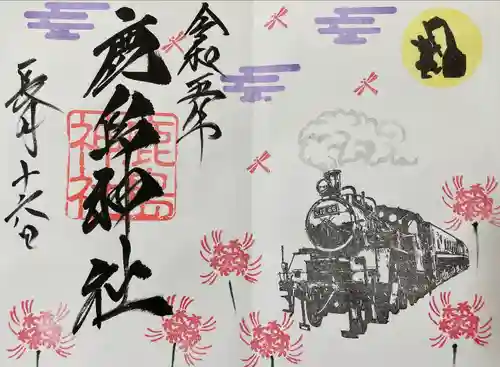 令和年
鹿島神社
鹿島
神社
長月十六日